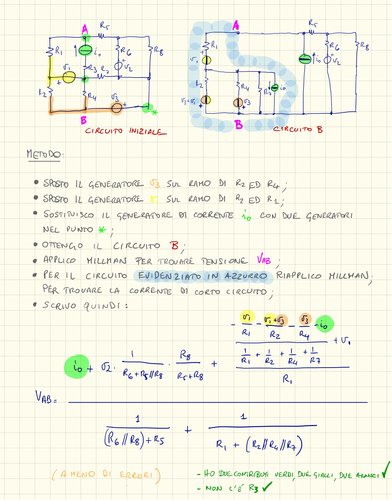 A
R5
R1
i0
R6
R8
R3
v2
v1
R7
R2
R4
v3
B
CIRCUITO INIZIALE
A
R5
R1
i0
R6
v2
R8
R2
R4
R7
i0
v3
B
CIRCUITO B
METODO:
• SPOSTO IL GENERATORE v3 SUL RAMO DI R2 ED R4;
• SPOSTO IL GENERATORE v1 SUL RAMO DI R2 ED R1;
• SOSTITUISCO IL GENERATORE DI CORRENTE i0 CON DUE GENERATORI
NEL PUNTO *;
• OTTENGO IL CIRCUITO B;
• APPLICO MILLMAN PER TROVARE TENSIONE VAB;
• PER IL CIRCUITO EVIDENZIATO IN AZZURRO RIAPPLICO MILLMAN,
PER TROVARE LA CORRENTE DI CORTO CIRCUITO;
• SCRIVO QUINDI:
- v1/R1 - (v1+v3)/R2 - v3/R4 - i0
1/R1 + 1/R2 + 1/R4 + 1/R7
+ v1
i0 + v2 · 1/(R6+R5//R8) · R8/(R5+R8) +
R1
VAB =
1/((R6//R8)+R5) + 1/(R1+(R2//R4//R7))
(A MENO DI ERRORI)
- HO DUE CONTRIBUTI VERDI, DUE GIALLI, DUE ARANCI ✓
- NON C'È R3 ✓